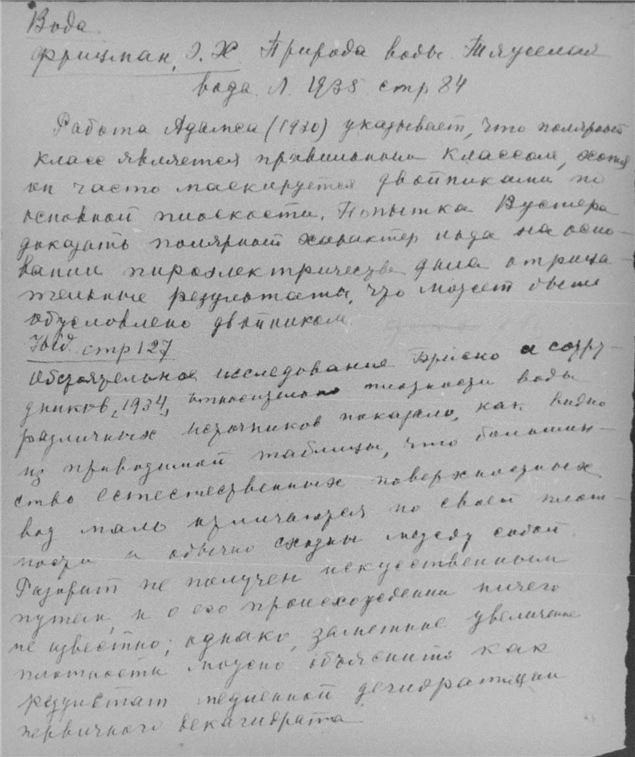 Вода
Фрицман, Э. Х Природа воды. Тяжелая
вода Л. 1935 стр 84
Работа Адамса (1930) указывает, что полярный
класс является правильным классом, хотя
он часто маскируется двойниками по
основной плоскости. Попытка Вустера
доказать полярный характер льда на осно-
вании пироэлектричества дала отрица-
тельные результаты, что может быть
обусловлено двойником
Ibid. стр 127
Обстоятельное исследование Бриско и сотру-
дников, 1934, относительно плотности воды
различных источников показало, как видно
из приводимой таблицы, что большин-
ство естестественных поверхностных
вод мало отличаются по своей плот-
ности и обычно сходны между собой.
Разорит не получен искусственным
путем, и о его происхождении ничего
не известно; однако, заметное увеличение
плотности можно объяснить как
результат медленной дегидратации
первичного декагидрата